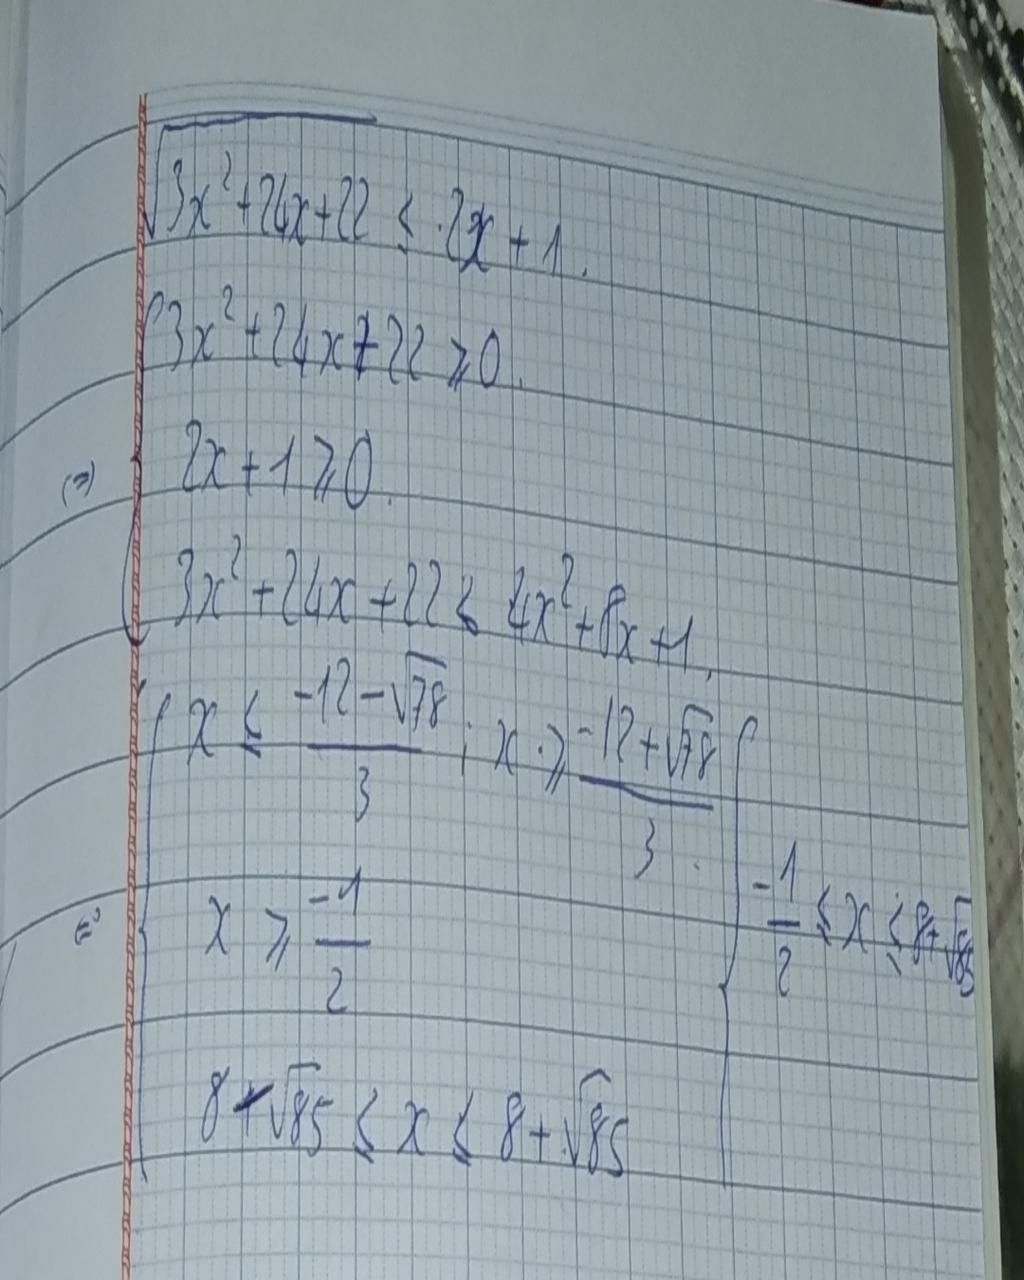 √(3x²+24x+22) ≤ 2x + 1.
3x²+24x+22 ⩾ 0.
(=) 2x+1 ⩾ 0.
3x²+24x+22 ≤ 4x²+8x+1.
x ≤ (-12-√78)/3 ; x ⩾ (-12+√78)/3.
x ⩾ -1/2
-1/2 ≤ x ≤ 8+√85
8-√85 ≤ x ≤ 8+√85